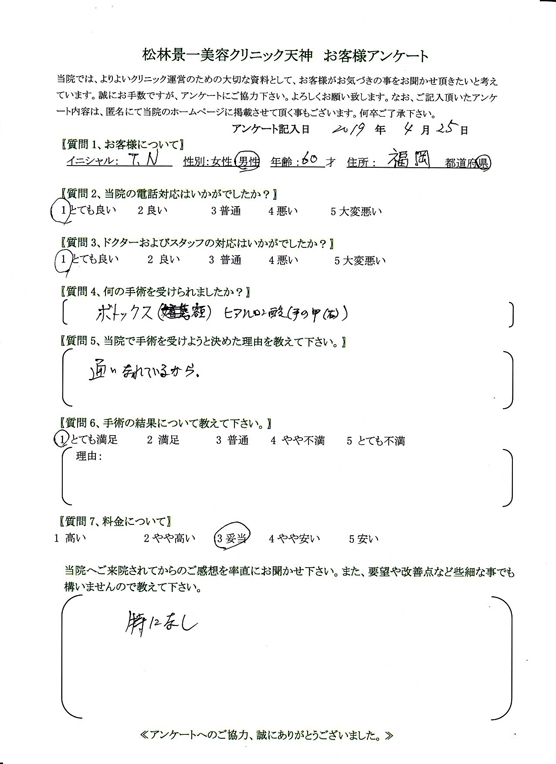 松林景一美容クリニック天神　お客様アンケート
当院では、よりよいクリニック運営のための大切な資料として、お客様がお気づきの事をお聞かせ頂きたいと考え
ています。誠にお手数ですが、アンケートにご協力下さい。よろしくお願い致します。なお、ご記入頂いたアンケ
ート内容は、匿名にて当院のホームページに掲載させて頂く事もございます。何卒ご了承下さい。
アンケート記入日　2019 年 4 月 25日
〖質問1、お客様について〗
イニシャル: T.N　性別:女性 男性　年齢:60 才　住所: 福岡　都道府県
〖質問2、当院の電話対応はいかがでしたか?〗
1とても良い　2 良い　3 普通　4 悪い　5 大変悪い
〖質問3、ドクターおよびスタッフの対応はいかがでしたか?〗
1とても良い　2 良い　3 普通　4 悪い　5 大変悪い
〖質問4、何の手術を受けられましたか?〗
ボトックス( 額) ヒアルロン酸(手の甲(右))
〖質問5、当院で手術を受けようと決めた理由を教えて下さい。〗
通いなれているから.
〖質問6、手術の結果について教えて下さい。〗
1とても満足　2 満足　3 普通　4 やや不満　5 とても不満
理由:
〖質問7、料金について〗
1 高い　2 やや高い　3 妥当　4 やや安い　5 安い
当院へご来院されてからのご感想を率直にお聞かせ下さい。また、要望や改善点など些細な事でも
構いませんので教えて下さい。
特になし
≪アンケートへのご協力、誠にありがとうございました。≫